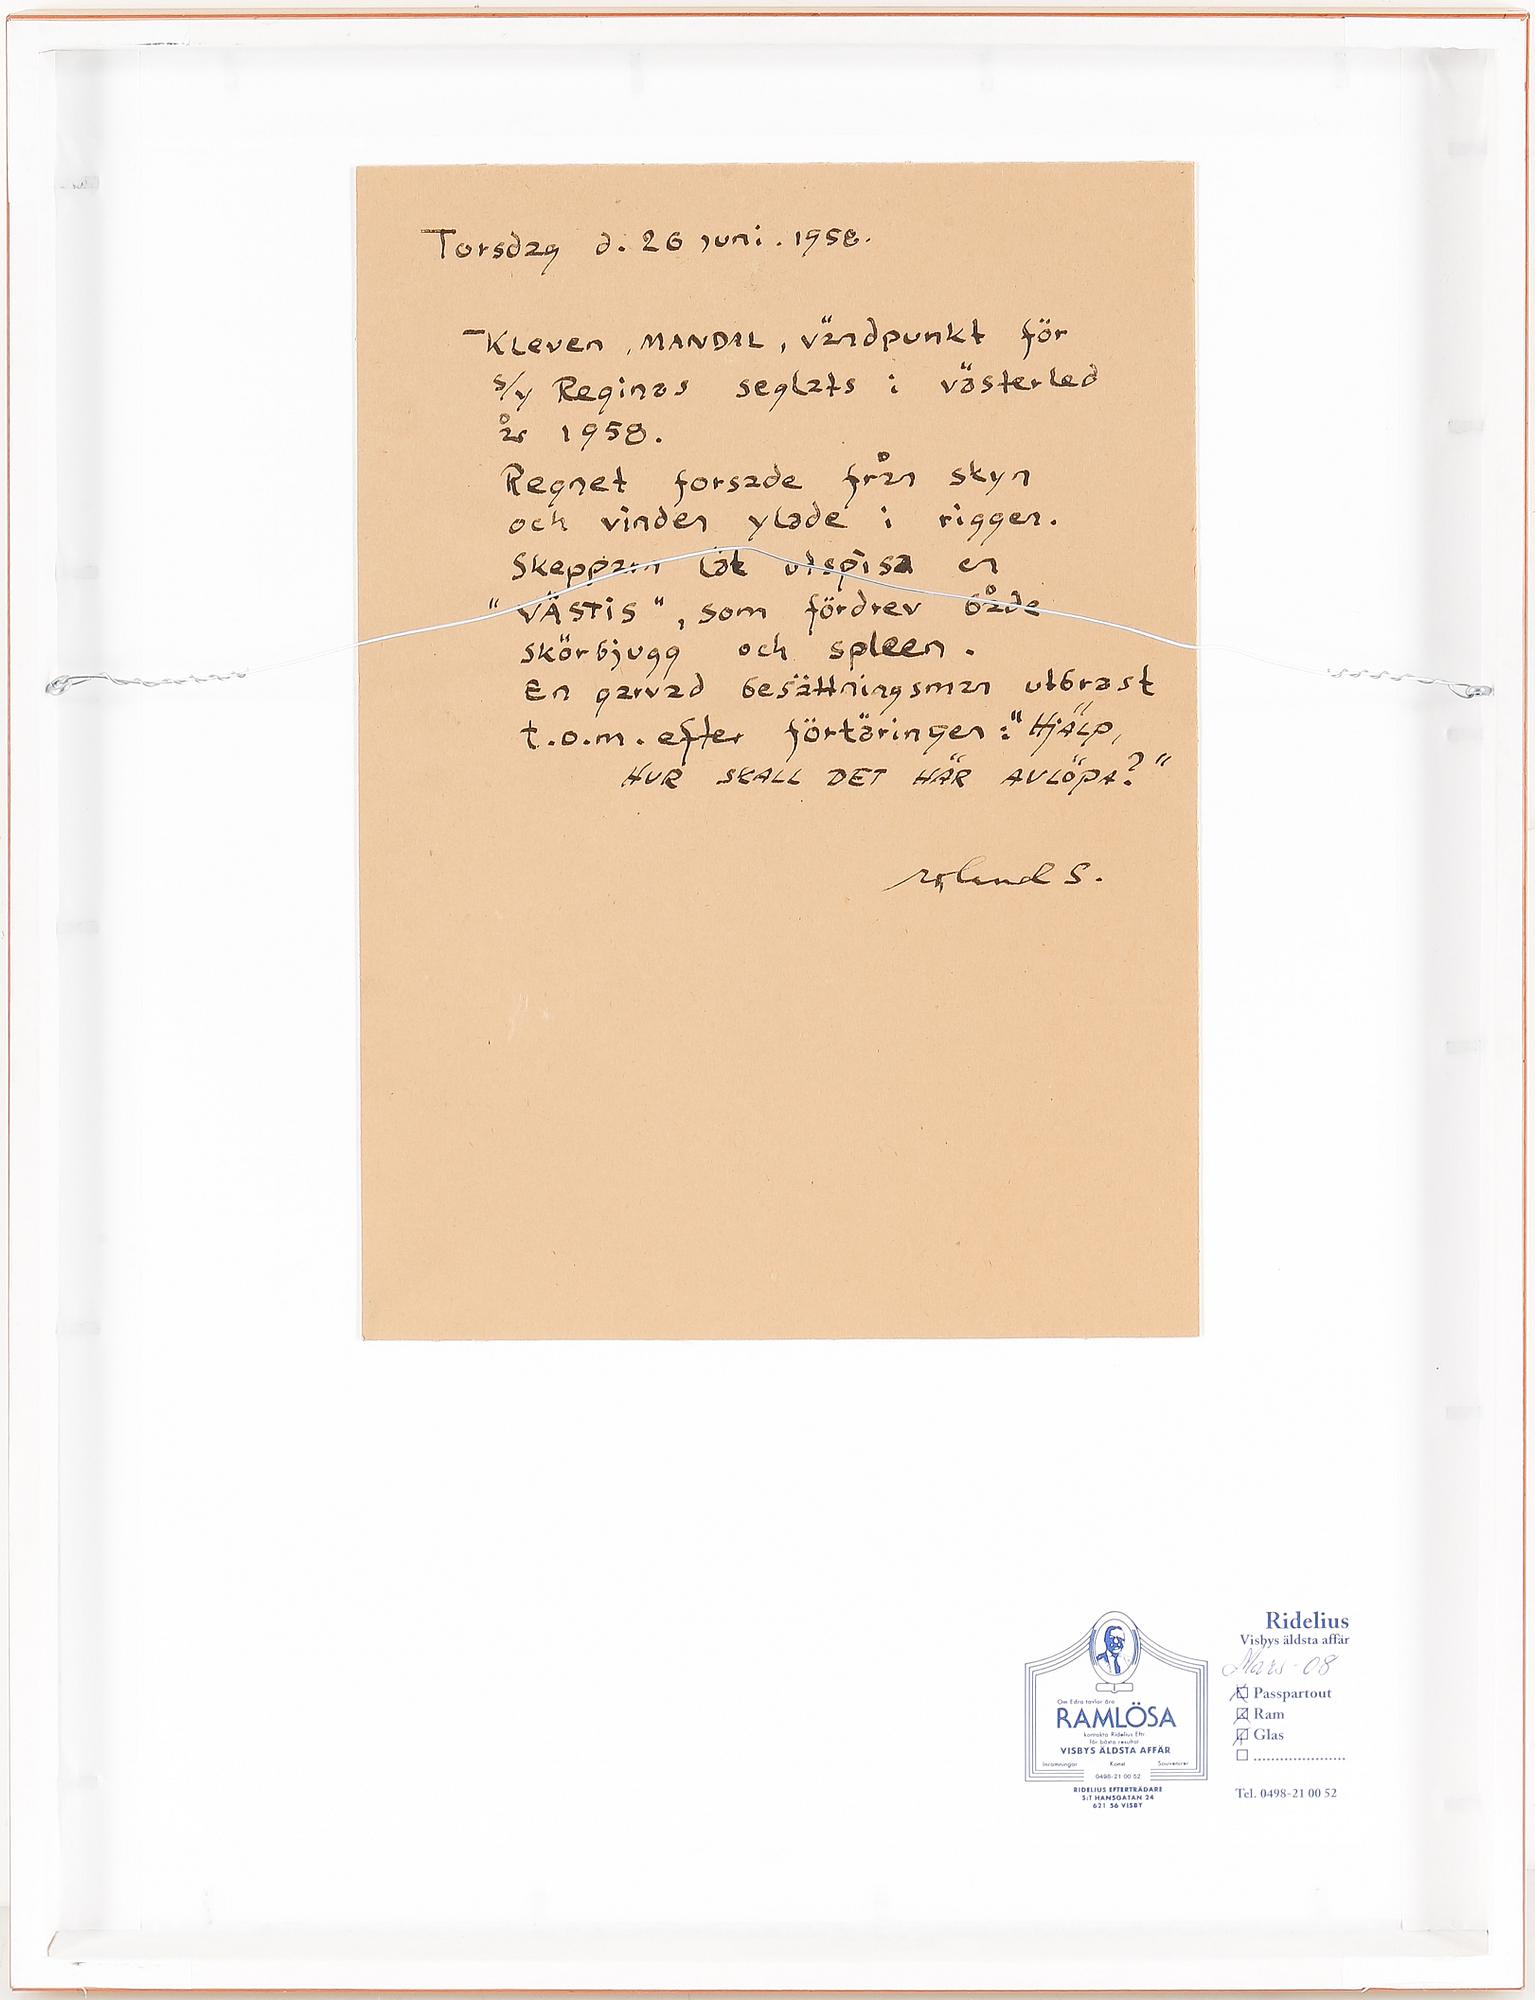 Torsdag d. 26 juni. 1958.
Kleven, MANDAL, vändpunkt för
s/y Reginas seglats i västerled
år 1958.
Regnet forsade från skyn
och vinden ylade i riggen.
Skepparn lät utspisa en
"VÄSTIS", som fördrev både
skörbjugg och spleen.
En garvad besättningsman utbrast
t.o.m. efter förtäringen: "HJÄLP,
HUR SKALL DET HÄR AVLÖPA?"
Roland S.
Ridelius
Visbys äldsta affär
Mars - 08
Passpartout
Ram
Glas
Tel. 0498-21 00 52
Om Edra tavlor äro
RAMLÖSA
kontakta Ridelius Eftr
för bästa resultat
VISBYS ÄLDSTA AFFÄR
Inramningar Konst Souvenirer
0498-21 00 52
RIDELIUS EFTERTRÄDARE
S:T HANSGATAN 24
621 56 VISBY